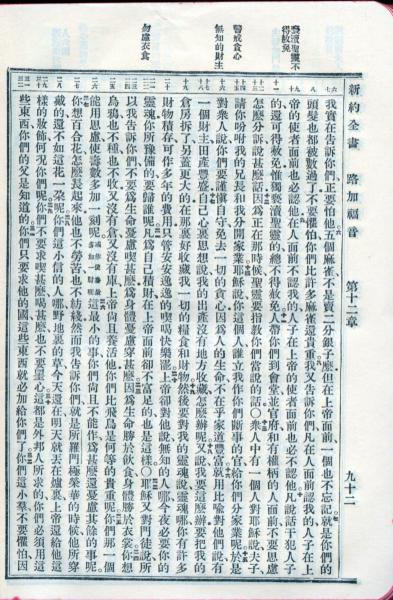 新約全書 路加福音 第十二章 九十二
褻瀆聖靈不得赦免
警戒貪心
無知的財主
勿慮衣食
我實在告訴你們正要怕他五個麻雀不是賣二分銀子麼但在上帝面前一個也不忘記就是你們的
頭髮也都被數過了不要懼怕你們比許多麻雀還貴重我又告訴你們凡在人面前認我的人子在上
帝的使者面前也必認他在人面前不認我的人子在上帝的使者面前也必不認他凡說話干犯人子
的還可得赦免惟獨褻瀆聖靈的總不得赦免人帶你們到會堂並官府和有權柄的人面前不要思慮
怎麼分訴說甚麼話因為正在那時候聖靈要指教你們當說的話〇眾人中有一個人對耶穌說夫子
請你吩咐我的兄長和我分開家業耶穌說你這個人誰立我作你們斷事的官給你們分家業呢於是
對眾人說你們要謹慎自守免去一切的貪心因為人的生命不在乎家道豐富就用比喻對他們說有
一個財主田產豐盛自己心裏思想說我的出產沒有地方收藏怎麼辦呢又說我要這麼辦要把我的
倉房拆了另蓋更大的在那裏好收藏我一切的糧食和財物然後要對我的靈魂說靈魂哪你有許多
財物積存可作多年的費用只管安安逸逸的喫喝快樂罷上帝卻對他說無知的人哪今夜必要你的
靈魂你所豫備的要歸誰呢凡為自己積財在上帝面前卻不富足的也是這樣〇耶穌又對門徒說所
以我告訴你們不要為生命憂慮喫甚麼為身體憂慮穿甚麼因為生命勝於飲食身體勝於衣裳你想
烏鴉也不種也不收又沒有倉又沒有庫上帝尚且養活他你們比飛鳥是何等的貴重呢你們那一個
能用思慮使壽數多加一刻呢這最小的事你們尚且不能作為甚麼還憂慮其餘的事呢
你想百合花怎麼長起來他也不勞苦也不紡綫然而我告訴你們就是所羅門極榮華的時候他所穿
戴的還不如這花一朵呢你們這小信的人哪野地裏的草今天還在明天就丟在爐裏上帝還給他這
樣的妝飾何況你們呢你們不要求喫甚麼喝甚麼也不要罣心這都是外邦人所求的你們必須用這
些東西你們的父是知道的你們只要求他的國這些東西就必加給你們了你們這小羣不要懼怕因